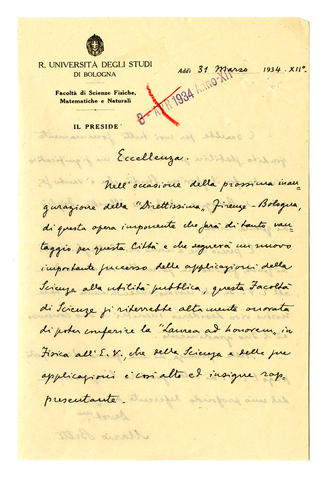 R. UNIVERSITÀ DEGLI STUDI
DI BOLOGNA
Facoltà di Scienze Fisiche,
Matematiche e Naturali
IL PRESIDE
Addì 31 Marzo 1934. XII°.
8 APR 1934 ANNO XII
Eccellenza.
Nell'occasione della prossima inau-
gurazione della "Direttissima" Firenze-Bologna,
di questa opera imponente che sarà di tanto van-
taggio per questa Città e che segnerà un nuovo
importante successo delle applicazioni della
Scienza alla utilità pubblica, questa Facoltà
di Scienze si riterrebbe altamente onorata
di poter conferire la "Laurea ad honorem" in
Fisica all'E. V., che della Scienza e delle sue
applicazioni è così alto ed insigne rap-
presentante.